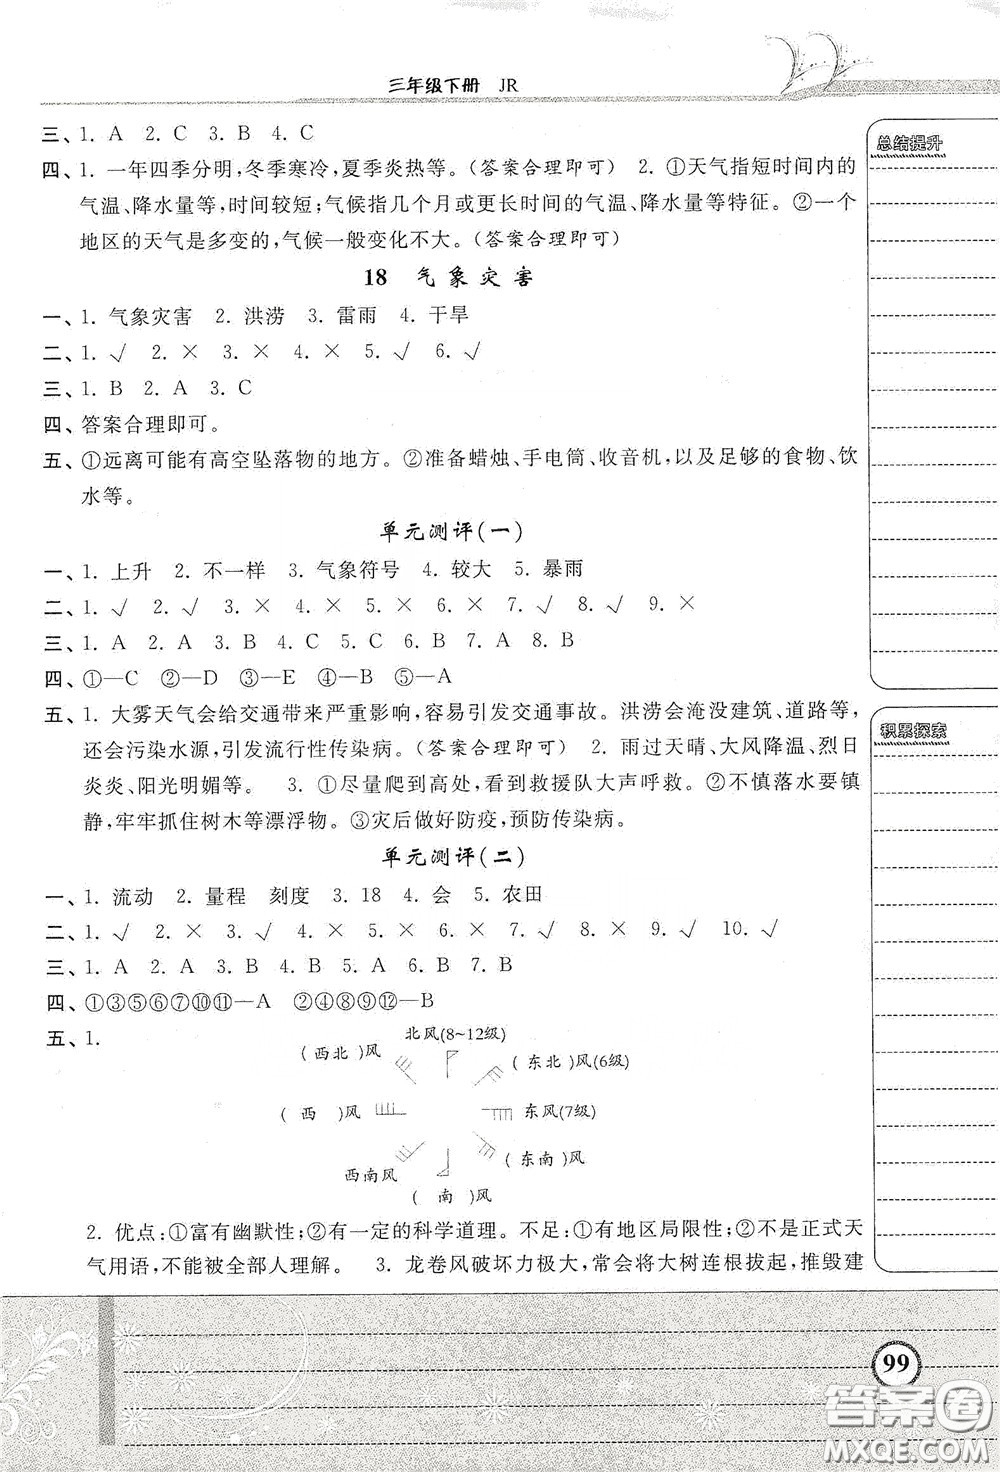 三年级下册　JR
三、1. A　2. C　3. B　4. C
四、1. 一年四季分明,冬季寒冷,夏季炎热等。(答案合理即可)　2. ①天气指短时间内的
气温、降水量等,时间较短;气候指几个月或更长时间的气温、降水量等特征。②一个
地区的天气是多变的,气候一般变化不大。(答案合理即可)
18　气象灾害
一、1. 气象灾害　2. 洪涝　3. 雷雨　4. 干旱
二、1. √　2. ×　3. ×　4. ×　5. √　6. √
三、1. B　2. A　3. C
四、答案合理即可。
五、①远离可能有高空坠落物的地方。②准备蜡烛、手电筒、收音机,以及足够的食物、饮
水等。
单元测评(一)
一、1. 上升　2. 不一样　3. 气象符号　4. 较大　5. 暴雨
二、1. √　2. √　3. ×　4. ×　5. ×　6. ×　7. √　8. √　9. ×
三、1. A　2. A　3. B　4. C　5. C　6. B　7. A　8. B
四、①—C　②—D　③—E　④—B　⑤—A
五、1. 大雾天气会给交通带来严重影响,容易引发交通事故。洪涝会淹没建筑、道路等,
还会污染水源,引发流行性传染病。(答案合理即可)　2. 雨过天晴、大风降温、烈日
炎炎、阳光明媚等。　3. ①尽量爬到高处,看到救援队大声呼救。②不慎落水要镇
静,牢牢抓住树木等漂浮物。③灾后做好防疫,预防传染病。
单元测评(二)
一、1. 流动　2. 量程　刻度　3. 18　4. 会　5. 农田
二、1. √　2. ×　3. √　4. ×　5. ×　6. ×　7. √　8. √　9. √　10. √
三、1. A　2. A　3. B　4. A　5. A　6. B　7. B
四、①③⑤⑥⑦⑩⑪—A　②④⑧⑨⑫—B
五、1.
北风(8~12级)
(西北)风
(东北)风(6级)
(西)风
东风(7级)
西南风
(东南)风
(南)风
2. 优点:①富有幽默性;②有一定的科学道理。不足:①有地区局限性;②不是正式天
气用语,不能被全部人理解。　3. 龙卷风破坏力极大,常会将大树连根拔起,推毁建
总结提升
积累探索
99
答案圈
MXQE.COM